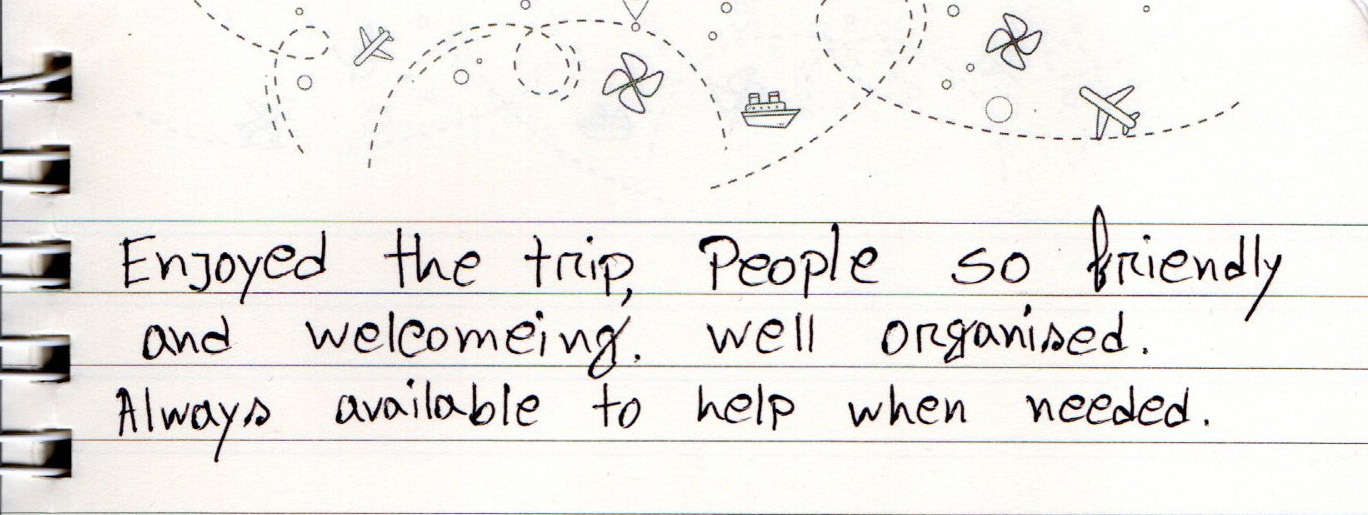 Enjoyed the trip, People so friendly
and welcomeing. well organised.
Always available to help when needed.